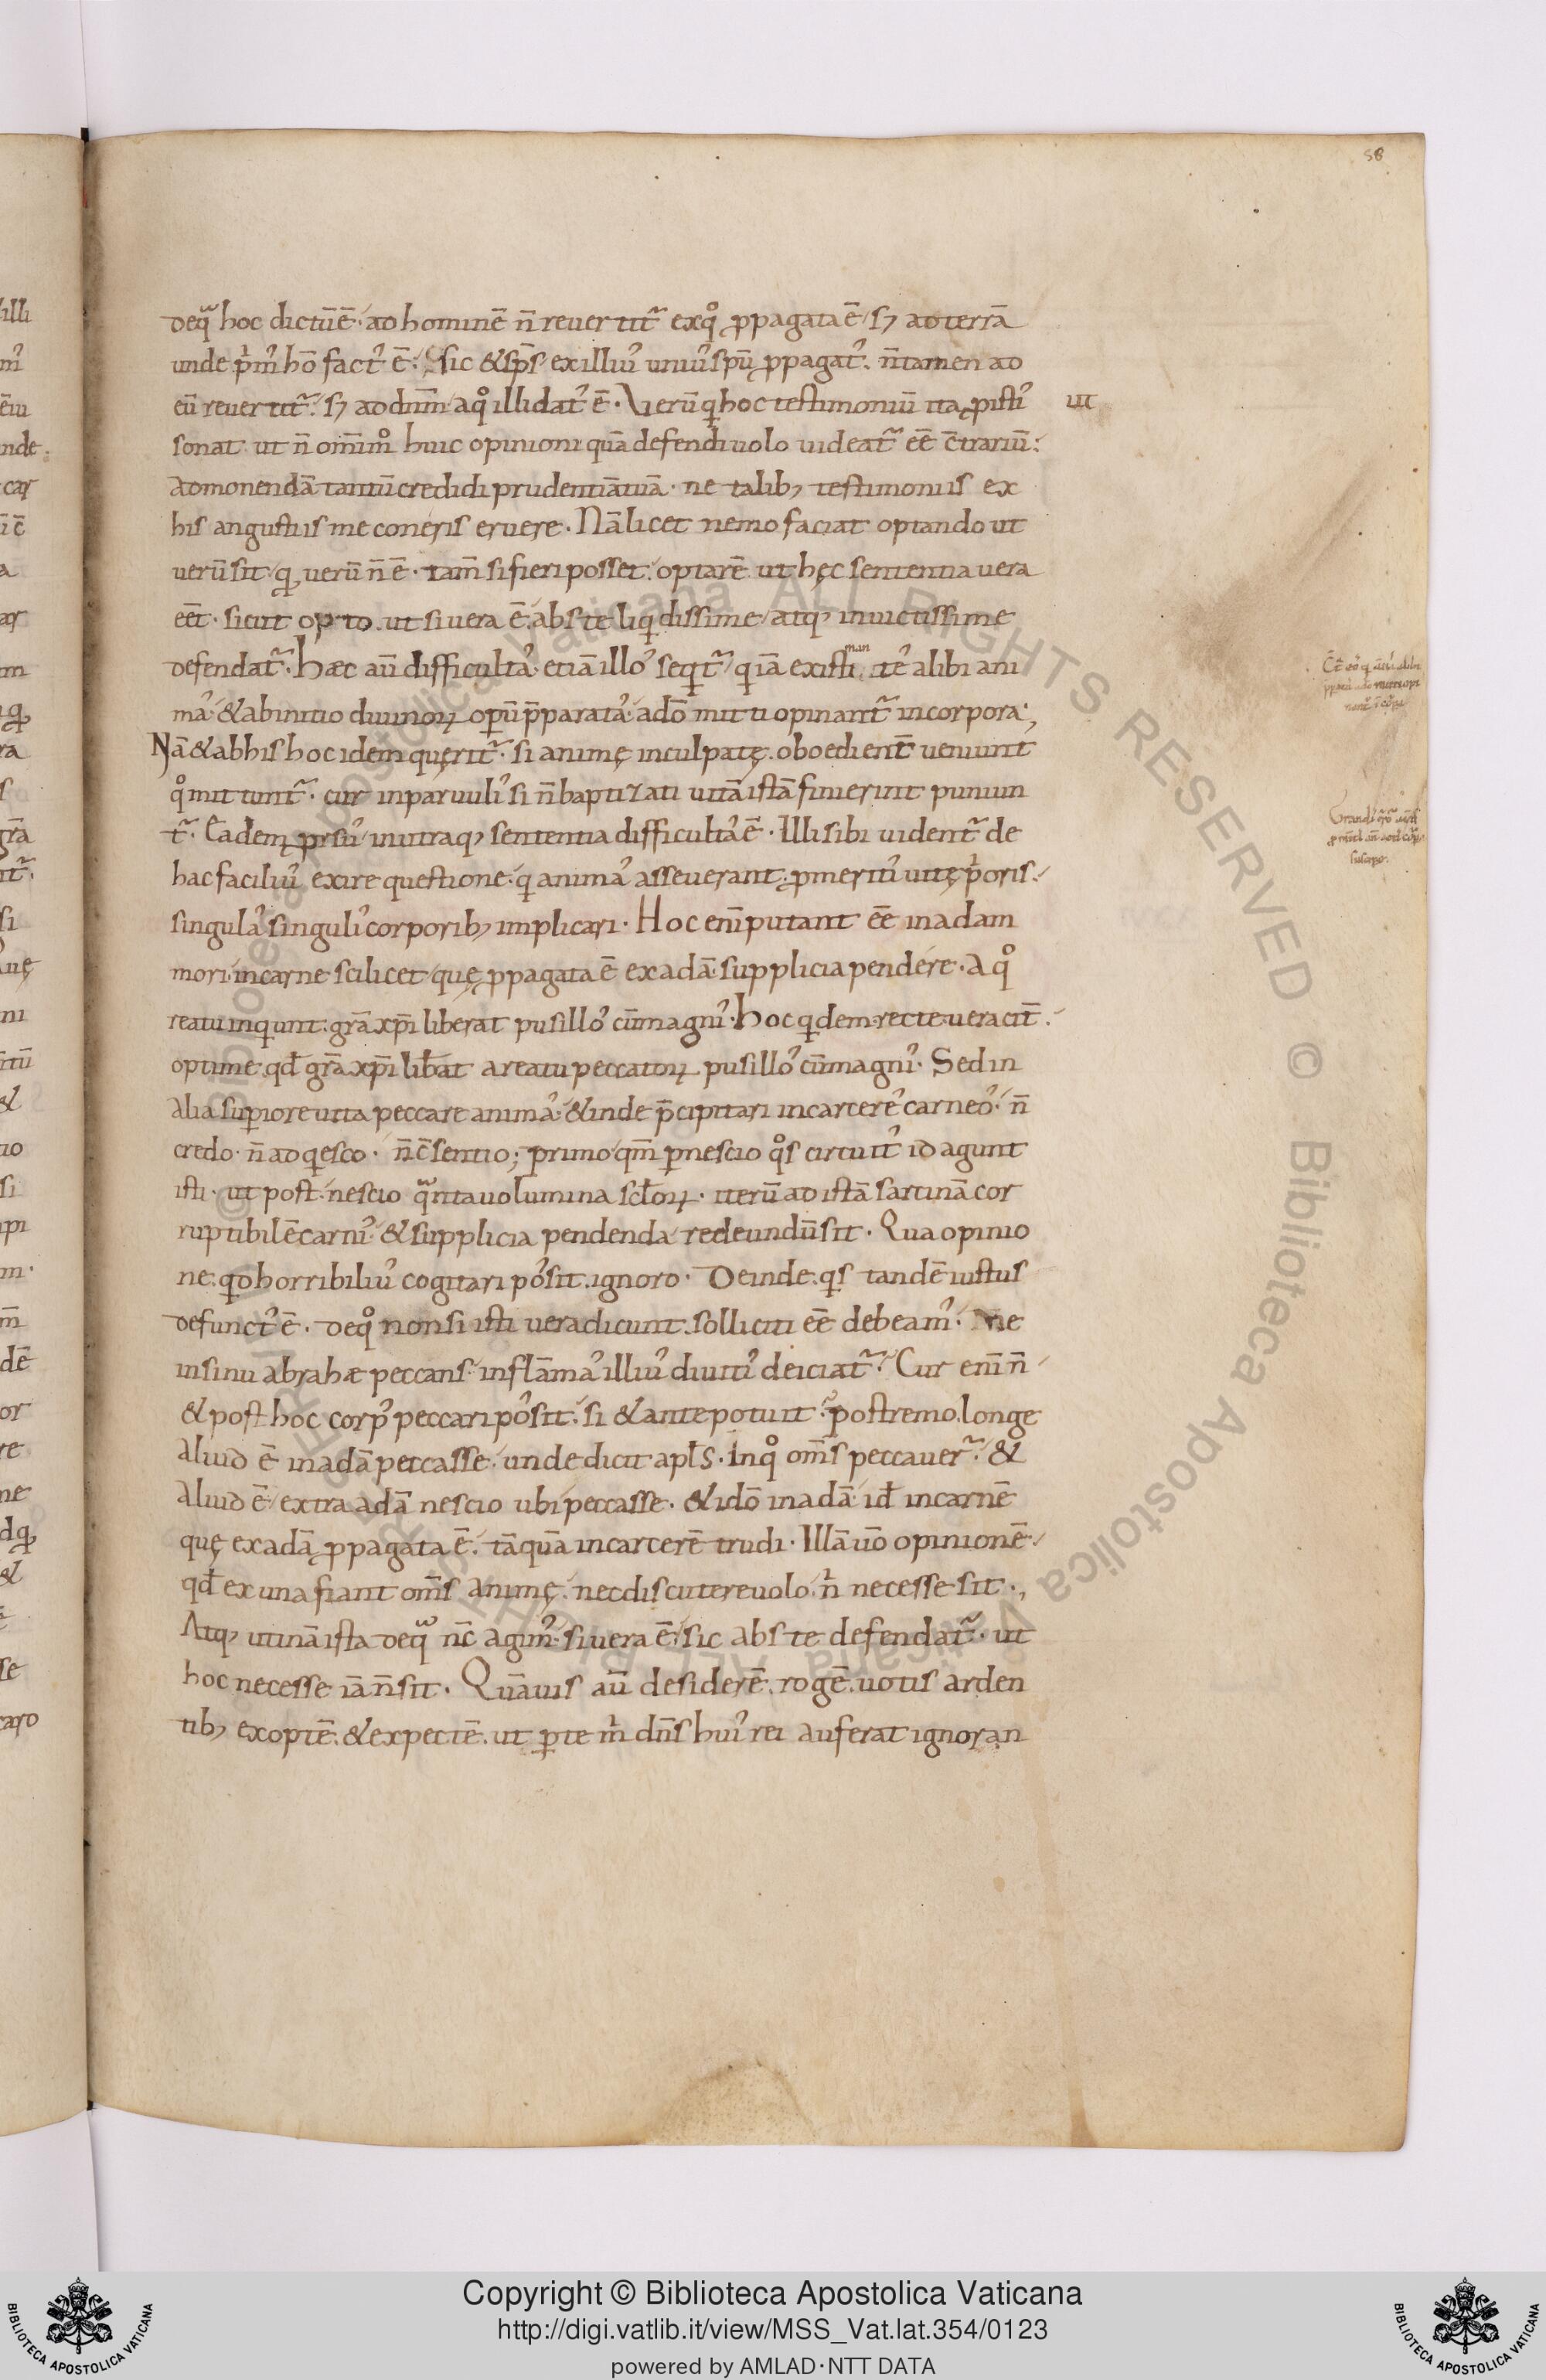 58
deq̃ hoc dictū ē. ad hominē n̄ reuertit᷑ ex q̊ ꝓpagata ē sꝫ ad terrā
unde p̍m᷒ hō fact᷒ ē. Sic & sp̄s ex illiu᷒ uniu᷒ spū ꝓpagat᷒. n̄ tamen ad
eū reuertit᷑. sꝫ ad dn̄m a q̊ illi dat᷒ ē. Verū q hoc testimoniū ita ꝓ isti᷒ ut
sonat ut n̄ om̄im̊ huic opinioni quā defendi uolo uideat᷑ eē c̄trariū.
admonendā tantū credidi prudentiā tuā. ne talibꝫ testimoniis ex
his angustiis me coneris eruere. Nā licet nemo faciat optando ut
uerū sit qđ uerū n̄ ē. tam̄ si fieri posset. optarē ut hęc sententia uera
eēt. sicut opto. ut si uera ē. abs te liqdissime atqꝫ inuictissime
defendat᷑. Hæc aū difficulta᷒ etiā illo᷒ seqt᷑ q iā existi man te᷒ alibi ani
ma᷒ & ab initio diuinoꝝ opū p̄parata᷒ a dō mitti opinant᷑ in corpora;
Nā & ab his hoc idem quęrit᷑. si animę inculpatę. oboedient̄ ueniunt
q̊ mittunt᷑. cur in paruuli᷒ si n̄ baptizati uitā istā finierint puniun
t᷑. Eadem prsu᷒ in utraqꝫ sententia difficulta᷒ ē. Illi sibi uident᷑ de
hac faciliu᷒ exire questione. q anima᷒ asseuerant. ꝓ meriti᷒ uitę p̍oris.
singula᷒ singuli᷒ corporibꝫ implicari. Hoc eni᷒ putant eē in adam
mori in carne scilicet quę ꝓpagata ē ex adā. supplicia pendere. A q̊
reatu inqunt. grā xp̄i liberat pusillo᷒ cū magni᷒. Hoc qdem recte ueracit̄.
optime. qđ grā xp̄i lib̄at a reatu peccatoꝝ pusillo᷒ cū magni᷒. Sed in
alia supiore uita peccare anima᷒. & inde p̄cipitari in carcere᷒ carneo᷒. n̄
credo. n̄ adqesco. n̄ c̄sentio; primo qm̄ p nescio q̊s circuit᷒ id agunt
isti. ut post nescio q̃nta uolumina sclōꝝ. iterū ad istā sarcinā cor
ruptibilē carni᷒. & supplicia pendenda redeundū sit. Qua opinio
ne. qd horribiliu᷒ cogitari po᷒sit. ignoro. Deinde. qs tandē iustus
defunct᷒ ē. de q̊ non si isti uera dicunt. solliciti eē debeam᷒. ne
in sinu abrahæ peccans in flāma᷒ illiu᷒ diuiti᷒ deiciat᷑. Cur eni᷒ n̄
& post hoc corp᷒ peccari po᷒sit. si & ante potuit. postremo. longe
aliud ē in adā peccasse. unde dicit apl̄s. In q̊ om̄s peccauer᷑. &
aliud ē extra adā nescio ubi peccasse. & idō in adā. iđ in carnē
quę ex adā ꝓpagata ē. tāquā in carcerē trudi. Illā uō opinionē
qđ ex una fiant om̄s animę. nec discutere uolo. n̍ necesse sit.,
Atqꝫ utinā ista deq̃ nc̄ agim᷒. si uera ē. sic abs te defendat᷑. ut
hoc necesse iā n̄ sit. Quāuis aū desiderē. rogē. uotis arden
tibꝫ exoptē. & expectē. ut p te m̍ dn̄s hui᷒ rei auferat ignoran
Copyright © Biblioteca Apostolica Vaticana
http://digi.vatlib.it/view/MSS_Vat.lat.354/0123
powered by AMLAD·NTT DATA
BIBLIOTECA APOSTOLICA VATICANA
BIBLIOTECA APOSTOLICA VATICANA